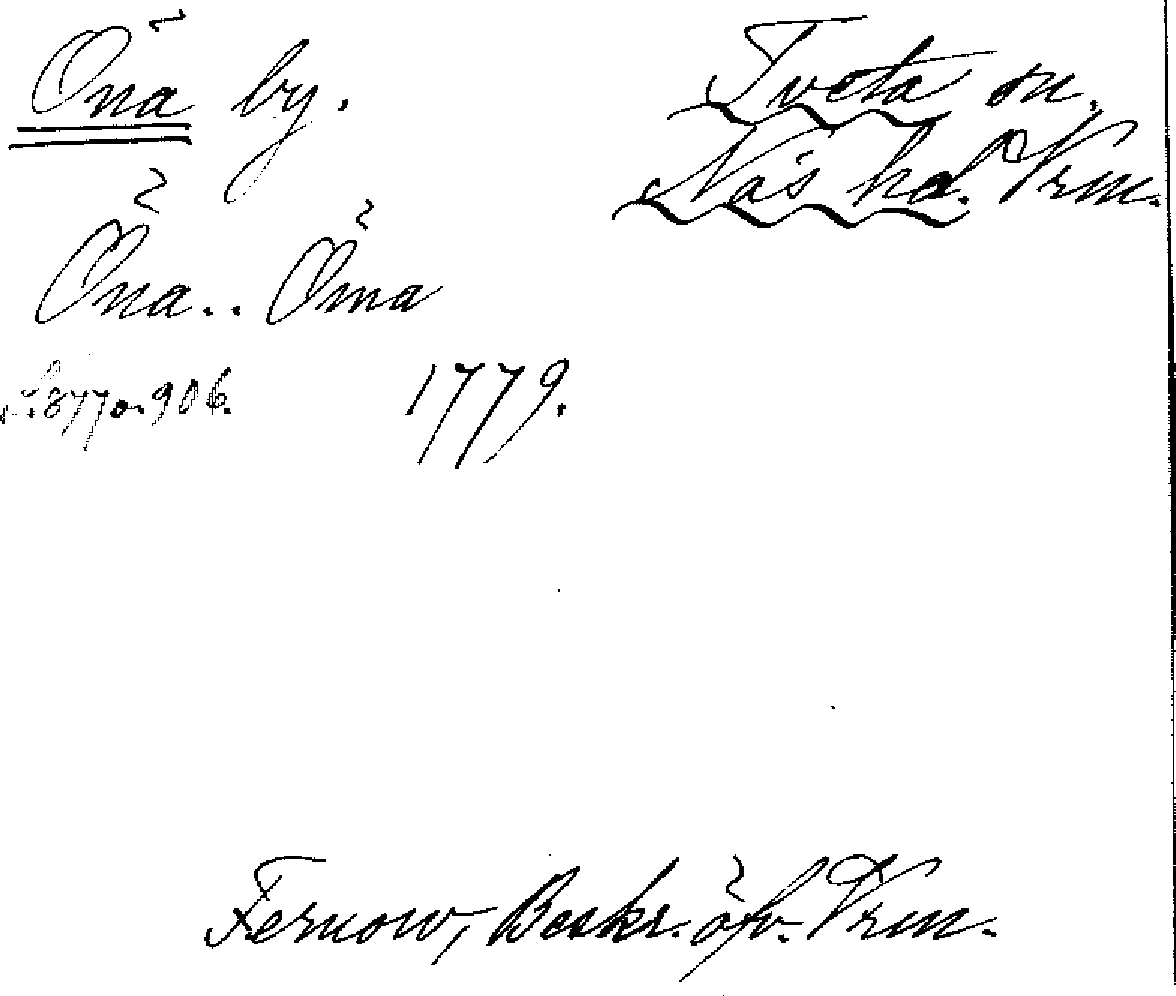 Öna by.
Tveta sn.
Näs hd. Vrm.
Öna.. Öma
s. 877 o. 906.
1779.
Fernow, Beskr. öfv. Vrm.